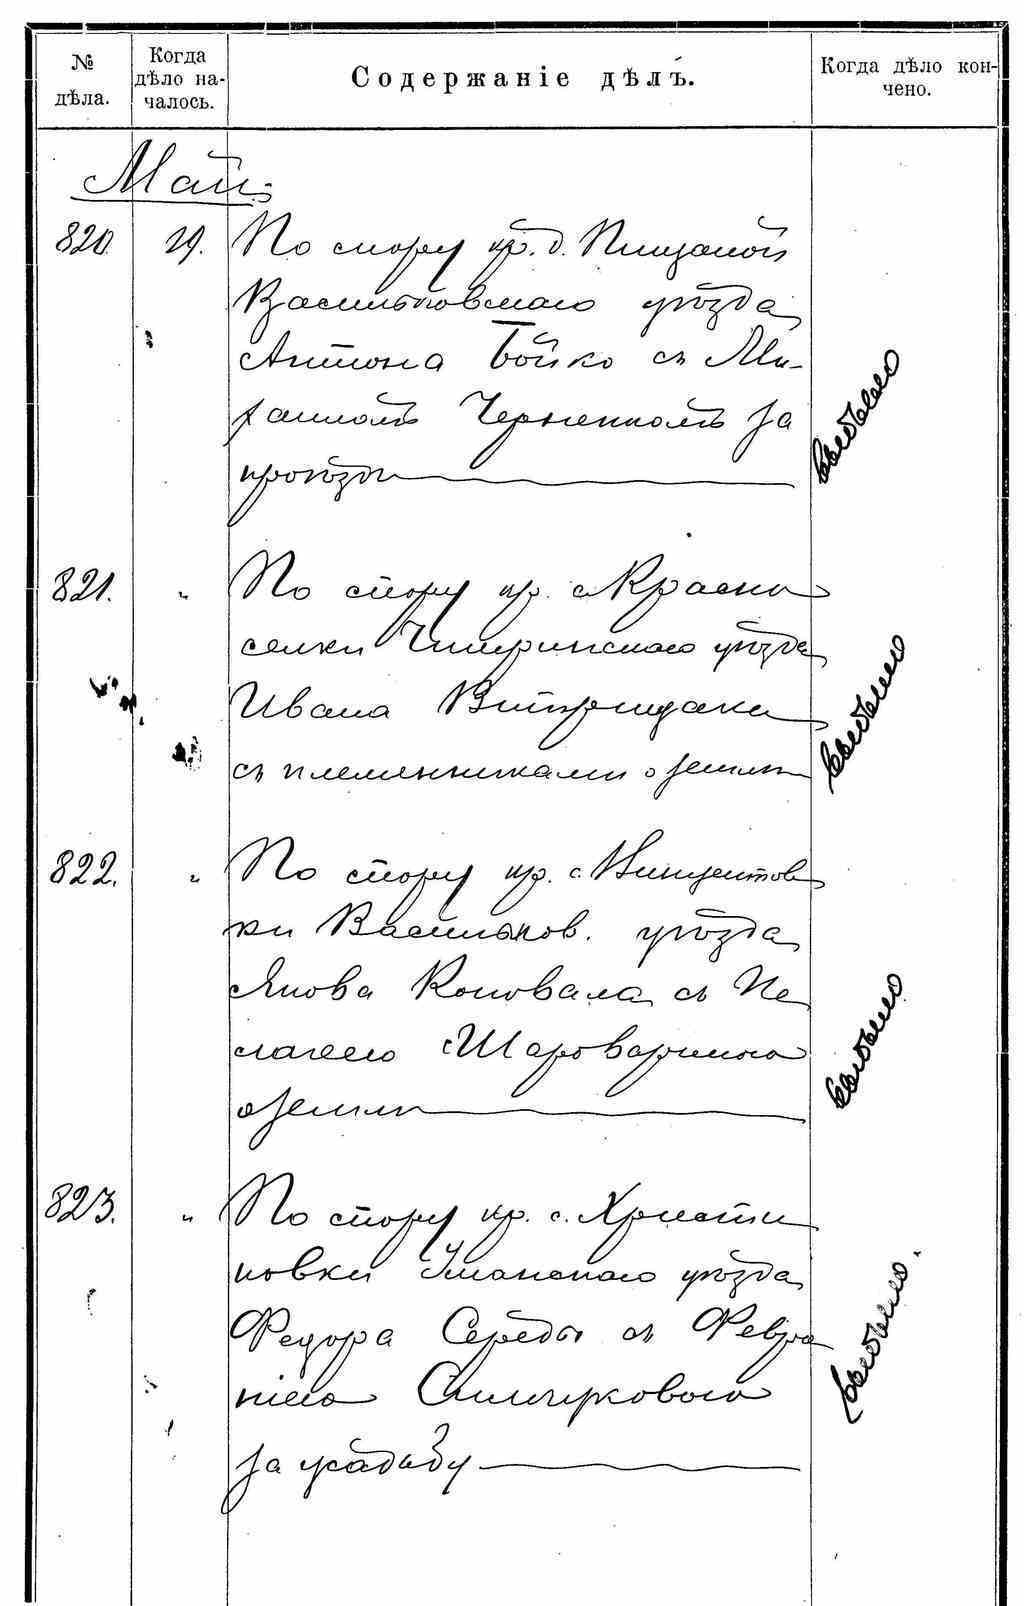 № дѣла.
Когда дѣло на-чалось.
Содержаніе дѣлъ.
Когда дѣло кон-чено.
Май
820. 29. По спору кр. д. Пищаной
Васильковскаго уѣзда
Антона Бойко съ Ми-
хаиломъ Черненкомъ за
проѣзды
821. " По спору кр. с. Красно
селки Чигиринскаго уѣзда
Ивана
съ племенниками о землѣ
822. " По спору кр. с. Винцентов
ки Васильков. уѣзда
Якова Коновала съ Пе
лагеею Шароварскою
о землѣ
823. " По спору кр. с. Христи
новки Уманскаго уѣзда
Федора Середы съ Февро
ніею
за усадьбу